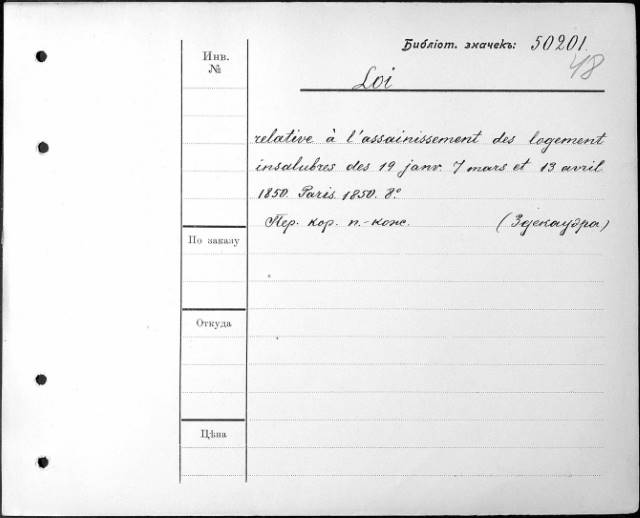 Библіот. значекъ: 50201.
48
Инв.
№
Loi
relative à l'assainissement des logement
insalubres des 19 janv. 7 mars et 13 avril
1850. Paris. 1850. 8°.
Пер. кор. п.-кож. (Здекаудра)
По заказу
Откуда
Цѣна